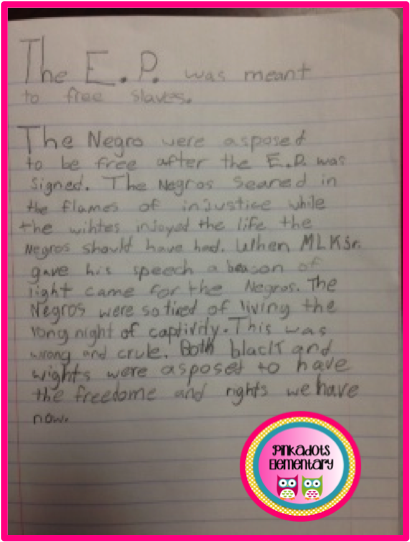 The E.P. was meant
to free slaves.
The Negro were asposed
to be free after the E.P. was
signed. The Negros Seared in
the flames of injustice while
the wihtes injoyed the life the
Negros should have had. When MLKJr.
gave his speech a beason of
light came for the Negros. The
Negros were so tired of living the
long night of captivity. This was
wrong and crule. Both black and
wights were asposed to have
the freedome and rights we have
now.
Pinkadots
Elementary